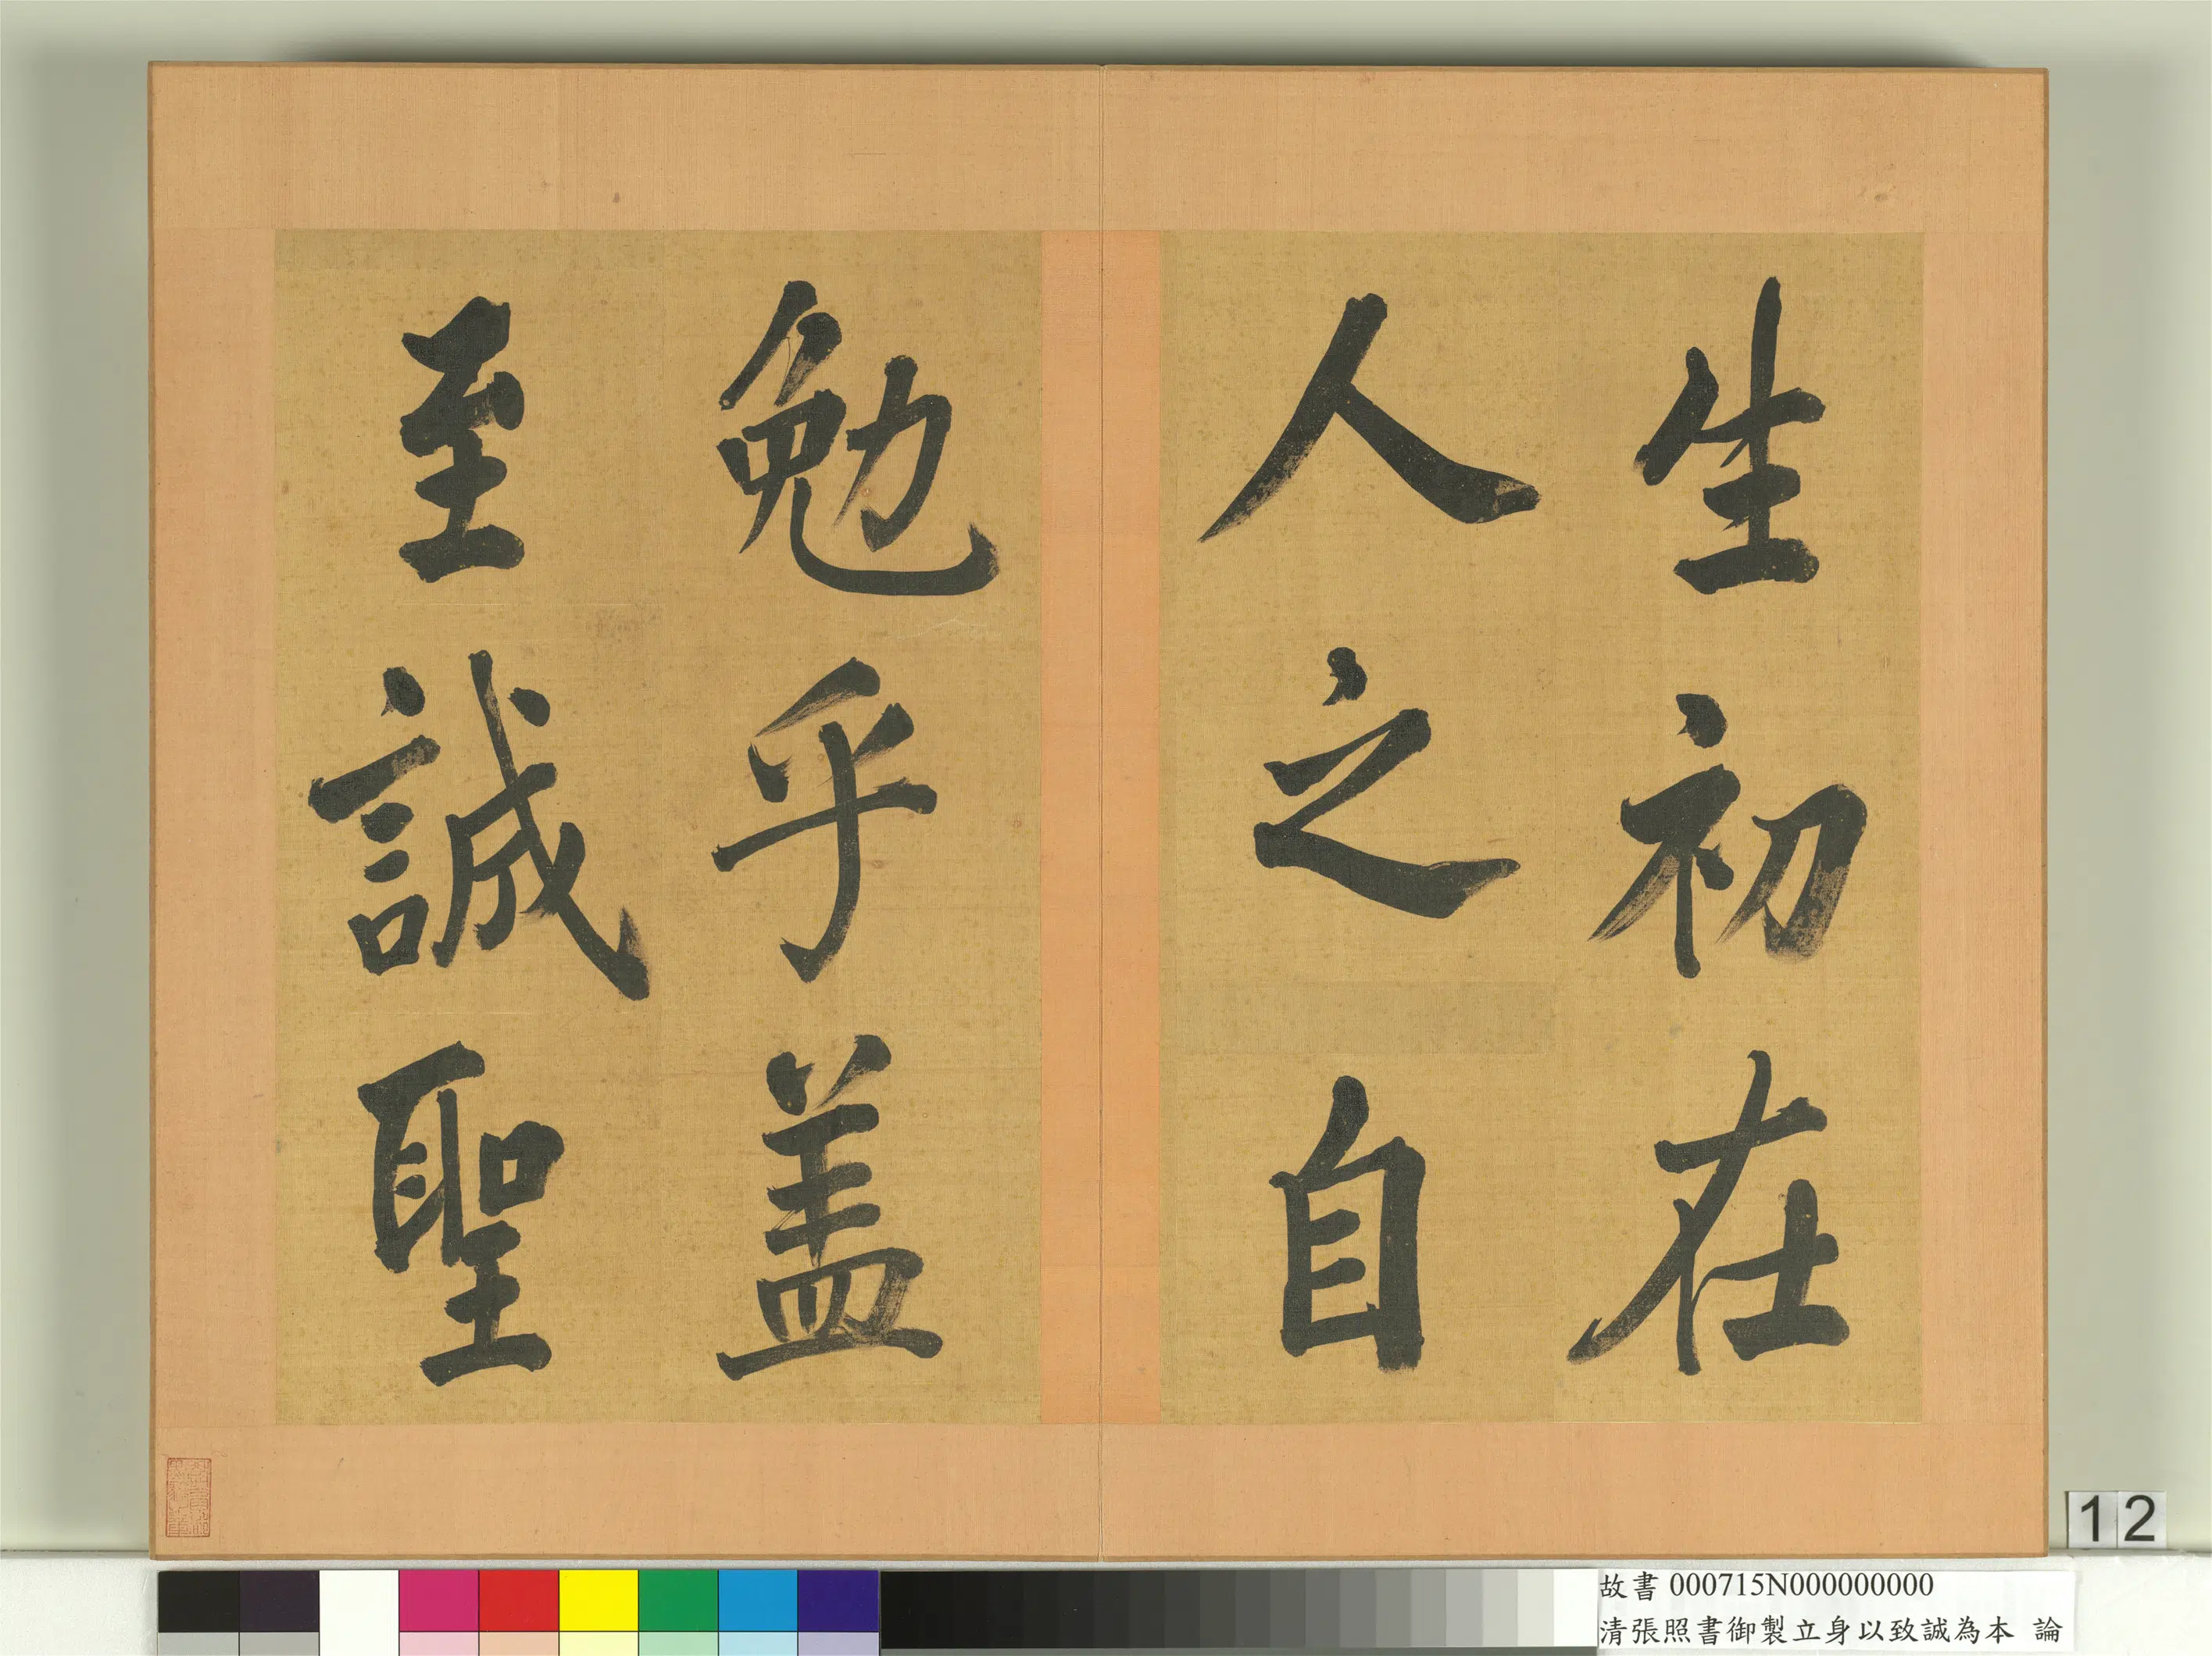 生初在
人之自
勉乎盖
至誠聖
12
故書 000715N000000000
清張照書御製立身以致誠為本 論